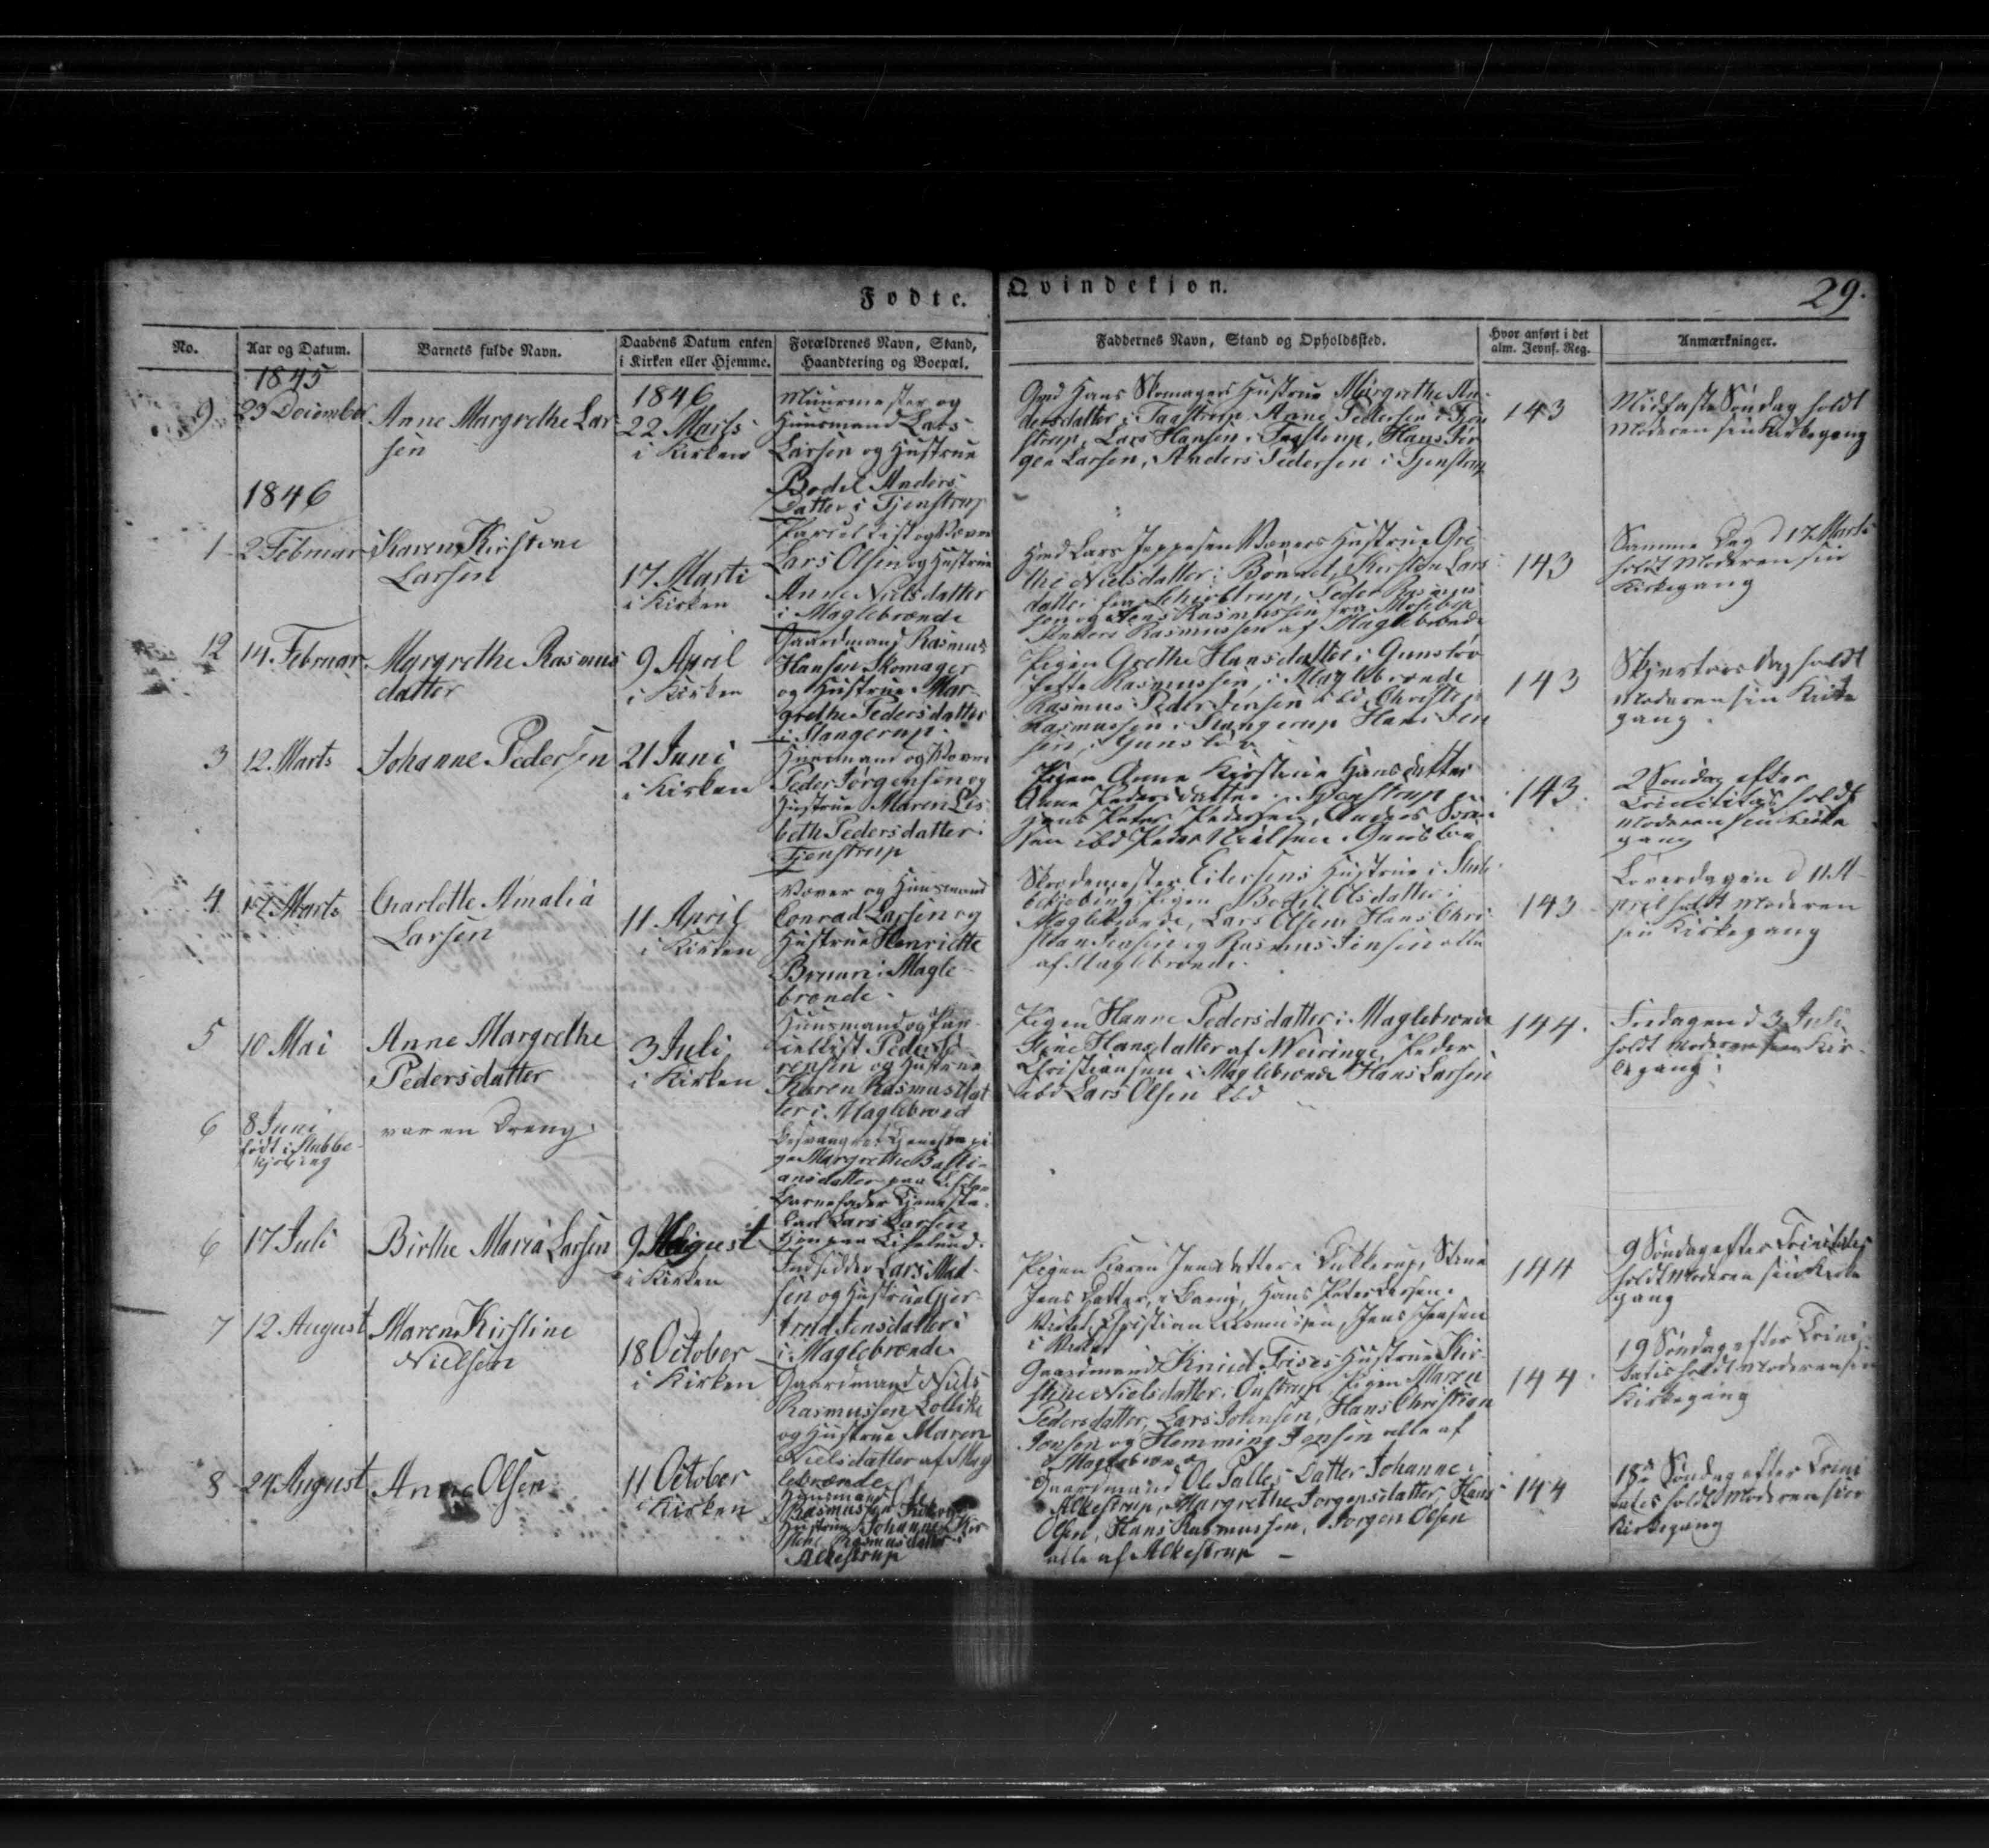 Fødte.
Qvindekjøn.
29.
No.
Aar og Datum.
Barnets fulde Navn.
Daabens Datum enten
i Kirken eller Hjemme.
Forældrenes Navn, Stand,
Haandtering og Boepæl.
Faddernes Navn, Stand og Opholdssted.
Hvor anført i det
alm. Jevnf. Reg.
Anmærkninger.
1845
9
23 December
Anne Margrethe Lar-
sen
1846
22 Marts
i Kirken
Muurmester og
Huusmand Lars
Larsen og Hustrue
Bodil Anders-
datter i Tjenstrup
Gmd Hans Skomagers Hustrue Margrethe An-
dersdatter i Tagstrup, Anne Pedersen i Tjen
strup, Lars Hansen i Tagstrup, Hans Jør-
gen Larsen, Anders Pedersen i Tjenstrup
143
Midfaste Søndag holdt
Moderen sin Kirkegang
1846
1
2 Februar
Karen Kirstine
Larsen
17 Marti
i Kirken
Parcellist og Væver
Lars Olsen og Hustrue
Anne Nielsdatter
i Maglebrænde
Hmd Lars Jeppesen Vævers Hustrue Gre-
the Nielsdatter i Kirsten Lars
datter fra Peder Rasmus
sen og Jens Rasmussen fra
Anders Rasmussen af Maglebrænde
143
Samme Dag d 17 Marts
holdt Moderen sin
Kirkegang
12
14. Februar
Margrethe Rasmus
datter
9 April
i Kirken
Gaardmand Rasmus
Hansen Skomager
og Hustrue Mar-
grethe Pedersdatter
i Stangerup.
Pigen Grethe Hansdatter i Gunslev
Rasmussen i Maglebrænde
Rasmus Peder Jensen ibd, Christen
Rasmussen i Stangerup Hans Jen
sen i Gunslev
143
Skjertorsdag holdt
Moderen sin Kirke
gang.
3
12. Marts
Johanne Pedersen
21 Juni
i Kirken
Huusmand og Væver
Peder Jørgensen og
Hustrue Maren Lis-
beth Pedersdatter i
Tjenstrup
Pigen Anne Kirstine Hansdatter
Anne Pedersdatter i Tjenstrup
Hans Peter Pedersen, Anders
sen ibd Peder Nielsen i Gunslev
143.
2 Søndag efter
Trinitatis holdt
Moderen sin Kirke
gang
4
17. Marts
Charlotte Amalia
Larsen
11 April
i Kirken
Væver og Huusmand
Conrad Larsen og
Hustrue Henriette
Bruun i Magle-
brænde.
Skrædermester Eilersens Hustrue i Stub-
bekjøbing Pigen Bodil Olsdatter i
Maglebrænde, Lars Olsen, Hans Chri-
stian Jensen og Rasmus Jensen alle
af Maglebrænde.
143
Løverdagen d 11 A-
pril holdt Moderen
sin Kirkegang
5
10 Mai
Anne Margrethe
Pedersdatter
3 Juli
i Kirken
Huusmand og Par-
cellist Peder Sø-
rensen og Hustrue
Karen Rasmusdat
ter i Maglebrænd
Pigen Hanne Pedersdatter i Maglebrænde
Stine Hansdatter af Meiringe, Peder
Christiansen i Maglebrænde Hans Larsen
ibd Lars Olsen ibd
144.
Fredagen d 3 Juli
holdt Moderen sin Kir-
kegang.
6
8 Juni
født i Stubbe-
kjøbing
var en Dreng.
Besvangret Tjenestepi-
ge Margrethe Basti-
ansdatter paa
Barnefader Tjeneste-
karl Lars Larsen
paa Liselund.
6
17 Juli
Birthe Maria Larsen
9 August
i Kirken
Indsidder Lars Mad-
sen og Hustrue Gjer-
trud Jensdatter i
i Maglebrænde
Pigen Karen Jensdatter i Stine
Jens Datter, Hans Peter Larsen i
Christian Rasmussen, Jens Jensen
144
9 Søndag efter Trinitatis
holdt Moderen sin Kirke
gang
7
12 August
Maren Kirstine
Nielsen
18 October
i Kirken
Gaardmand Niels
Rasmussen Lollike
og Hustrue Maren
Nielsdatter af Mag
lebrænde
Gaardmand Knud Frises Hustrue Kir-
stine Nielsdatter i Oustrup, Pigen Maren
Pedersdatter, Lars Hans Christian
Jensen og Flemming Jensen alle af
Maglebrænde
144
19 Søndag efter Trini-
tatis holdt Moderen sin
Kirkegang
8
24 August
Anne Olsen
11 October
i Kirken
Huusmand Ole
Rasmussen
Hustrue Johanne Kir
stine Rasmusdatter i
Alkestrup
Gaardmand Ole Palles Datter Johanne i
Alkestrup, Margrethe Jørgensdatter, Hans
Olsen, Hans Rasmussen, Jørgen Olsen
alle af Alkestrup —
144
18de Søndag efter Trini
tatis holdt Moderen sin
Kirkegang